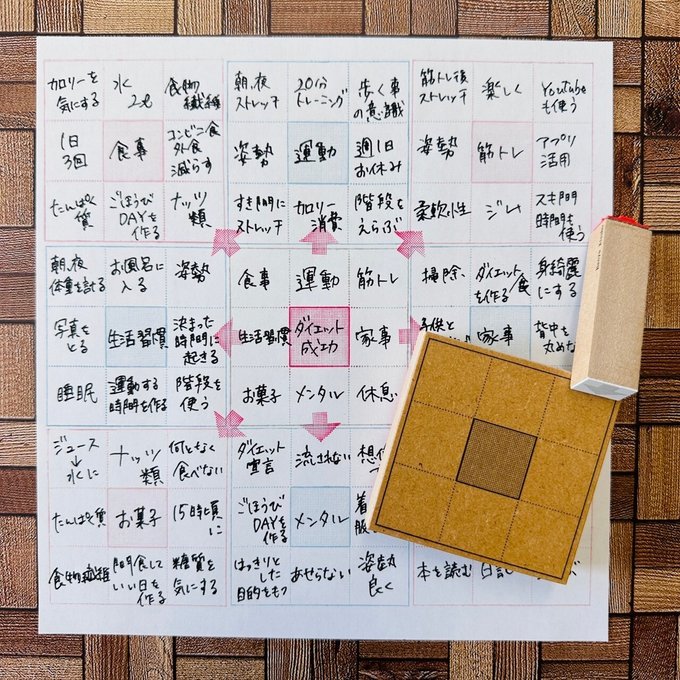 カロリーを
気にする
水
2ℓ
食物
繊維
1日
3回
食事
コンビニ食
外食
減らす
たんぱく
質
ごほうび
DAYを
作る
ナッツ
類
朝、夜
ストレッチ
20分
トレーニング
歩く事
の意識
姿勢
運動
週1日
お休み
すき間に
ストレッチ
カロリー
消費
階段を
えらぶ
筋トレ後
ストレッチ
楽しく
YouTube
も使う
姿勢
筋トレ
アプリ
活用
柔軟性
ジム
スキ間
時間を
使う
朝、夜
体重を計る
お風呂に
入る
姿勢
写真を
とる
生活習慣
決まった
時間に
起きる
睡眠
運動する
時間を作る
階段を
使う
食事
運動
筋トレ
生活習慣
ダイエット
成功
家事
お菓子
メンタル
休息
掃除、
ダイエット食
を作る
身綺麗
にする
子供と
家事
背中を
丸めな
ジュース
↓
水に
ナッツ
類
何となく
食べない
たんぱく質
お菓子
15時頃
に
食物繊維
間食して
いい日を
作る
糖質を
気にする
ダイエット
宣言
流されない
ごほうび
DAYを
作る
メンタル
はっきりと
した
目的をもつ
あせらない
姿勢
良く
本を読む